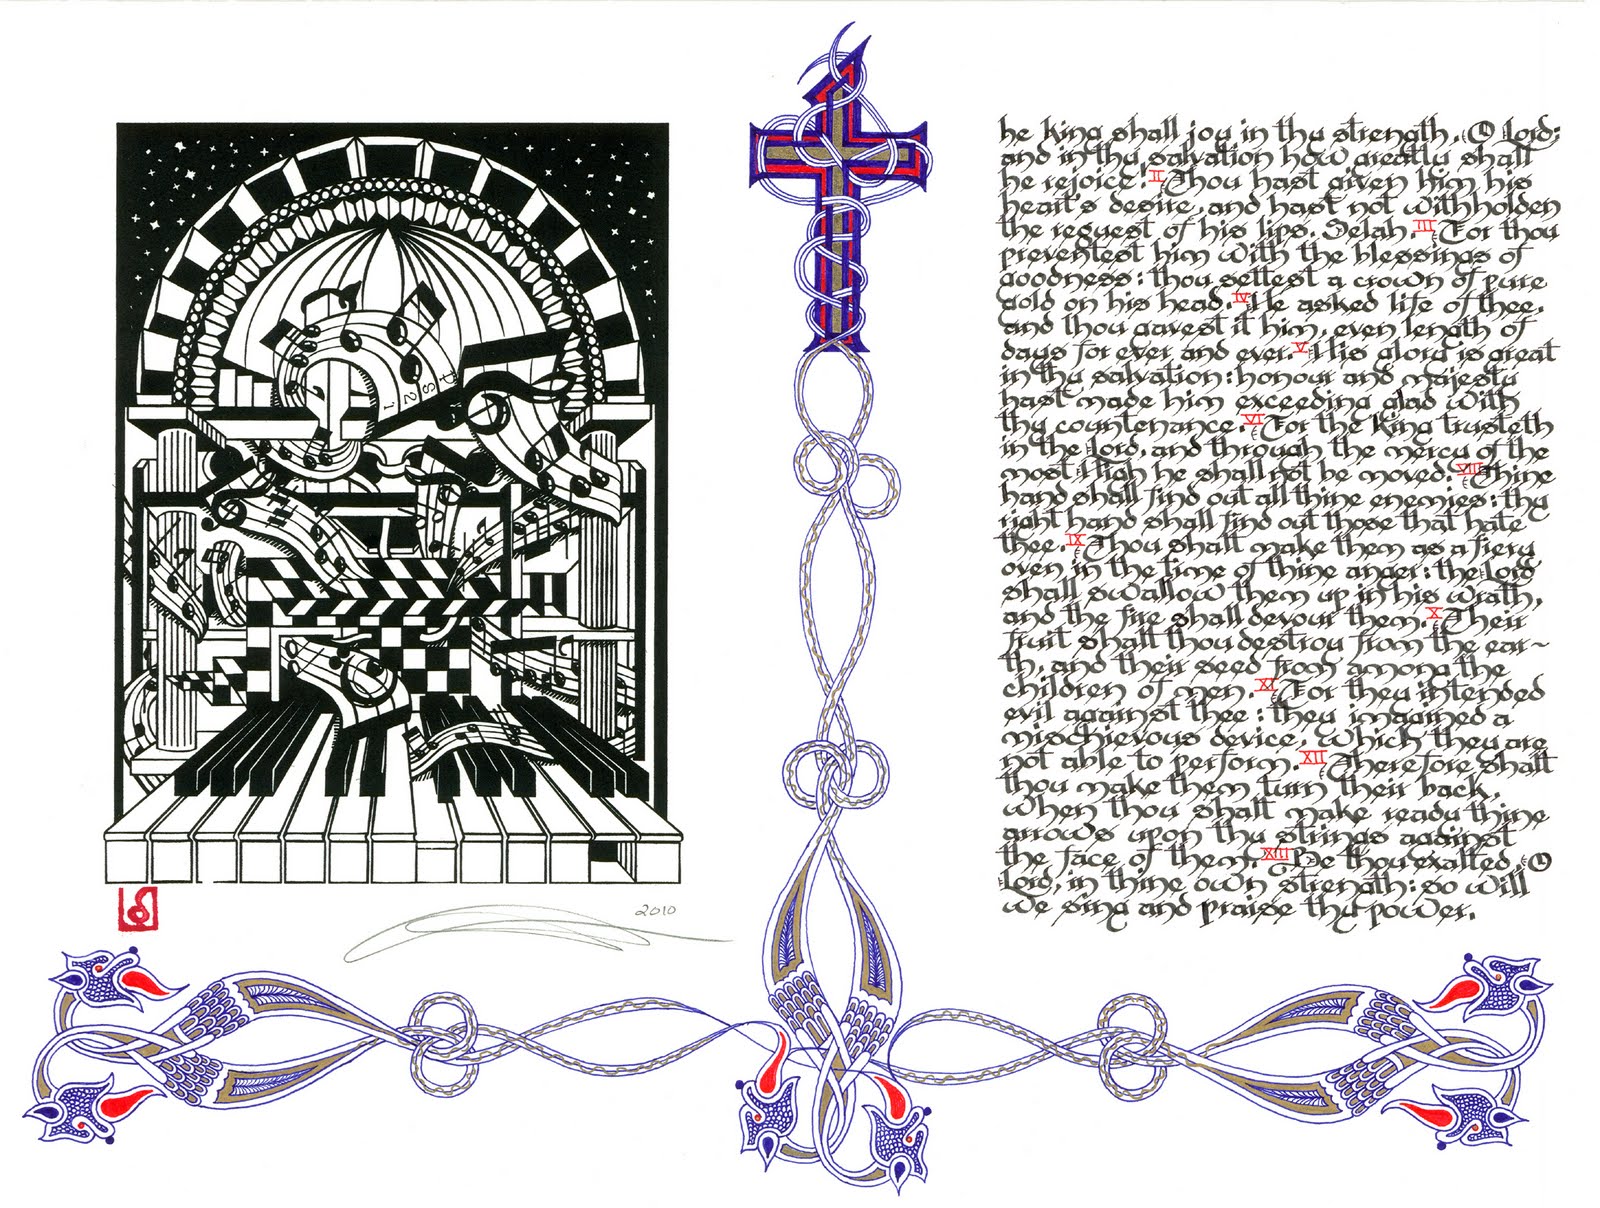 2010
he King shall joy in thy strength, O Lord;
and in thy salvation how greatly shall
he rejoice! II Thou hast given him his
heart's desire, and hast not withholden
the request of his lips. Selah. III For thou
preventest him with the blessings of
goodness: thou settest a crown of pure
gold on his head. IV He asked life of thee,
and thou gavest it him, even length of
days for ever and ever. V His glory is great
in thy salvation: honour and majesty
hast made him exceeding glad with
thy countenance. VI For the King trusteth
in the Lord, and through the mercy of the
most High he shall not be moved. VIII Thine
hand shall find out all thine enemies: thy
right hand shall find out those that hate
thee. IX Thou shalt make them as a fiery
oven in the time of thine anger: the Lord
shall swallow them up in his wrath,
and the fire shall devour them. X Their
fruit shalt thou destroy from the ear~
th, and their seed from among the
children of men. XI For they intended
evil against thee: they imagined a
mischievous device, which they are
not able to perform. XII Therefore shalt
thou make them turn their back,
when thou shalt make ready thine
arrows upon thy strings against
the face of them. XIII Be thou exalted, O
Lord, in thine own strength: so will
we sing and praise thy power.